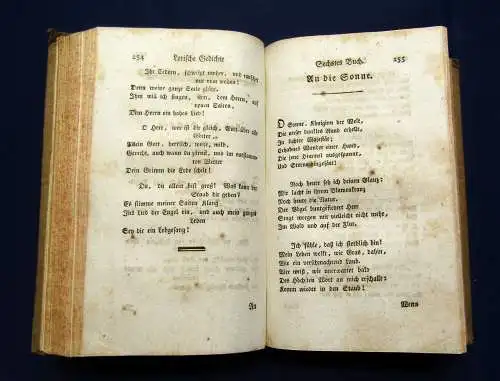 254 Lyrische Gedichte
Ihr Cedern, schweigt umher, und rauschet
nur von weitem!
Denn meine ganze Seele glüht.
Ihm will ich singen, ihm, dem Herrn, auf
neuen Saiten,
Dem Herrn ein hohes Lied!
O Herr, wer ist dir gleich, Gott über alle
Götter,
Allein Gott, herrlich, weise, mild,
Gerecht, auch wann du zürnst, und im
von Wetter
Dein Grimm die Erde schilt!
Du, du allein bist groß! Was kann der
Staub dir geben?
Es stimme meiner Saiten Klang
Ins Lied der Engel ein, und auch mein ganzes
Leben
Sey dir ein Lobgesang!
An
Sechstes Buch. 255
An die Sonne.
O Sonne, Königinn der Welt,
Die unser dunkles Rund erhellt,
In lichter Majestät;
Erhabnes Wunder einer Hand,
Die jene Himmel ausgespannt,
Und Sterne hingesät!
Noch heute seh ich deinen Glanz:
Mir lacht in ihrem Blumenkranz
Noch heute die Natur.
Der Vögel buntgefiedert Heer
Singt morgen mir vielleicht nicht mehr,
Im Wald und auf der Flur.
Ich fühle, daß ich sterblich bin!
Mein Leben welkt, wie Gras, dahin,
Wie ein verschmachtend Laub.
Wer weiß, wie unerwartet bald
Des Höchsten Wort an mich erschallt:
Komm wieder in den Staub!
Wenn